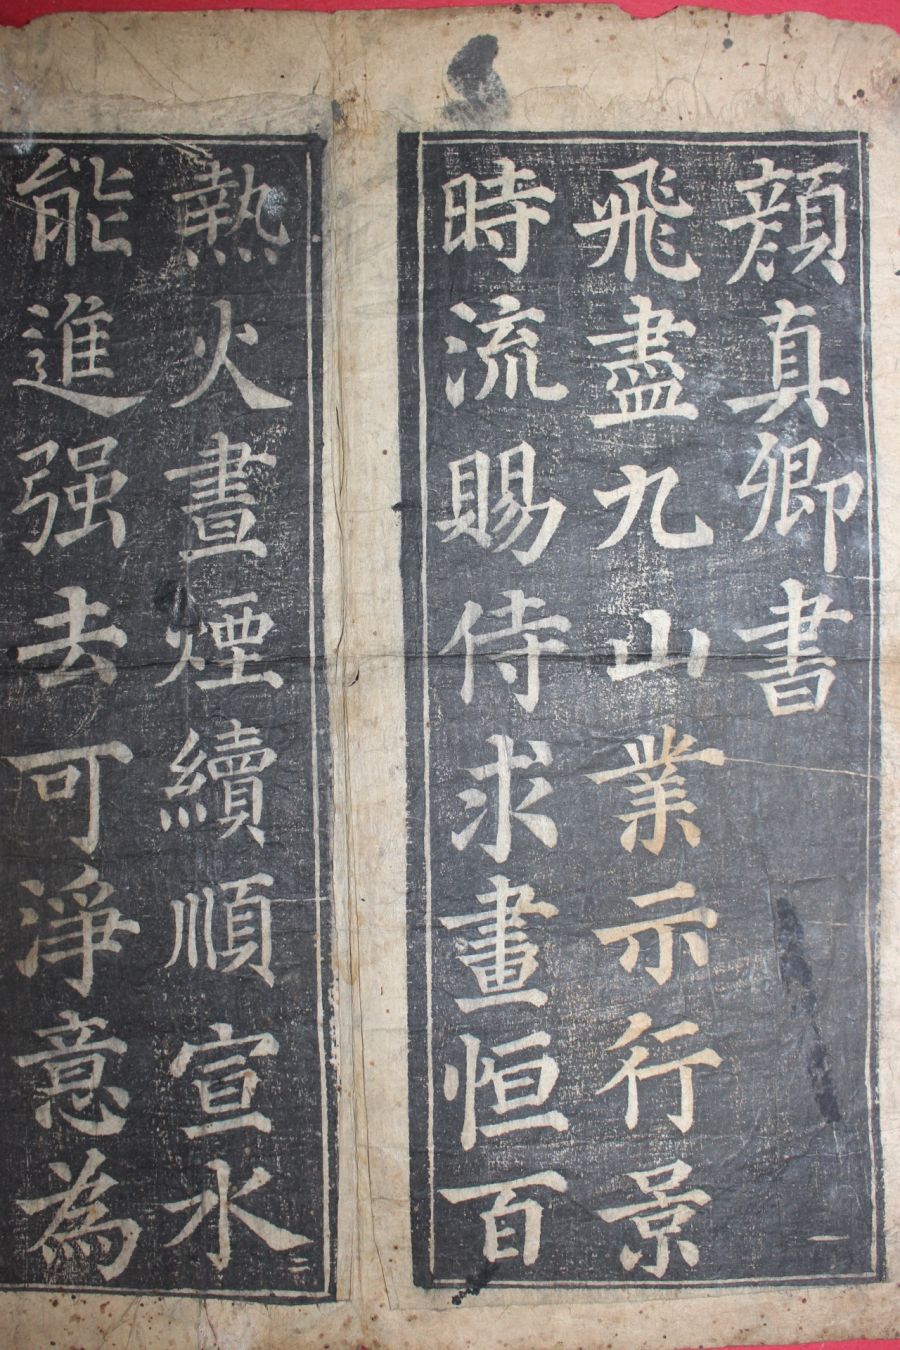 顔真卿書
飛盡九山業示行景
時流賜侍求畫恒百
一
熱火晝煙續順宣水
能進强去可淨意為
二